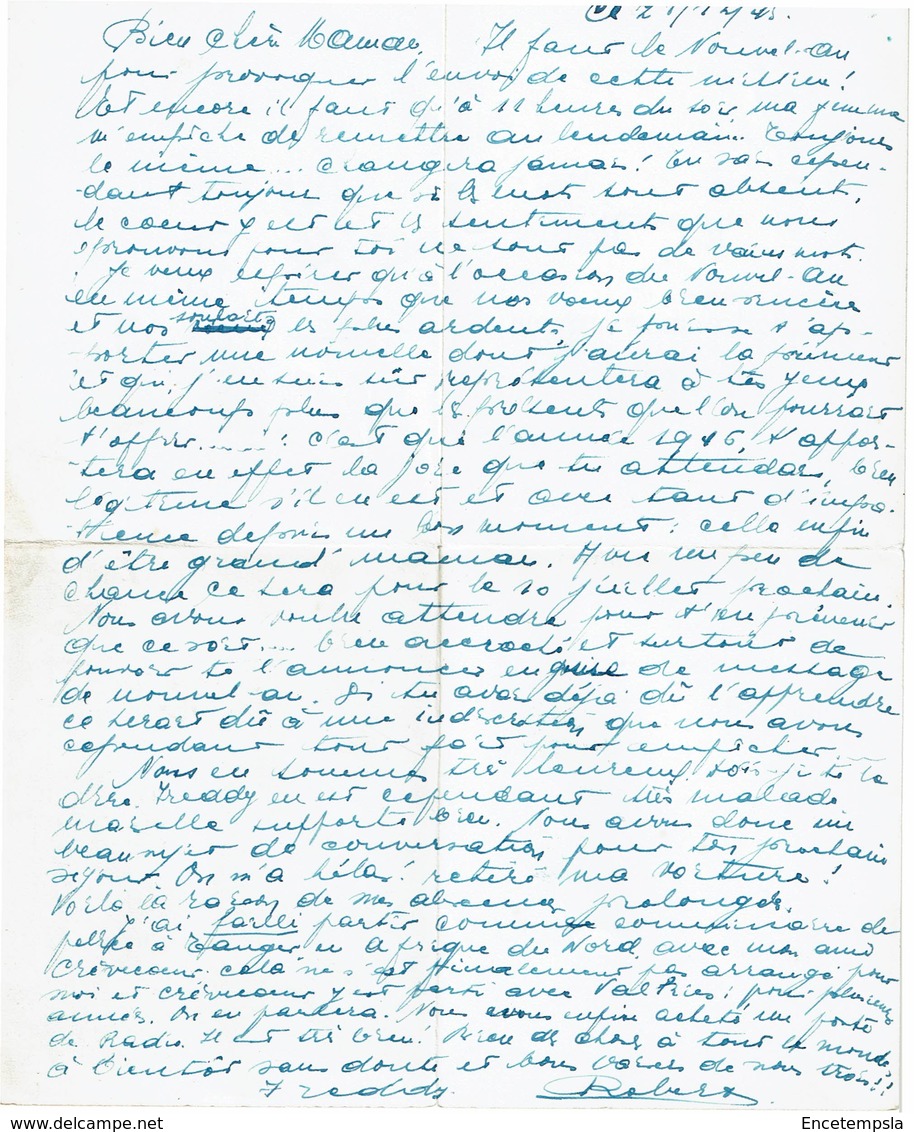 Le 21/12/45.
Bien chère Maman, Il faut le Nouvel-an
pour provoquer l'envoi de cette missive!
Et encore il faut qu'à 12 heures du soir ma femme
m'empêche de remettre au lendemain. Toujours
le même.... changera jamais! Tu sais cepen-
dant toujours que si les mots sont absents,
le coeur y est et les sentiments que nous
éprouvons pour toi ne sont pas de vains mots.
Je veux espérer qu'à l'occasion du Nouvel-an
en même temps que nos voeux bien sincères
et nos souhaits les plus ardents, je puisse t'ap-
porter une nouvelle dont j'aurai la primeur
et qui, j'en suis sûr représentera à tes yeux
beaucoup plus que les présents que l'on pourrait
t'offrir......: c'est que l'année 1946, t'appor-
tera en effet la joie que tu attendais, bien
légitime s'il en est et avec tant d'impa-
tience depuis un bon moment: celle enfin
d'être grand'maman. Avec un peu de
chance ce sera pour le 10 juillet prochain.
Nous avons voulu attendre pour t'en prévenir
que ce soit.... bien accroché et surtout de
pouvoir te l'annoncer en guise de message
de nouvel-an. Si tu avais déjà dû l'apprendre
ce serait dû à une indiscrétion que nous avons
cependant tout fait pour empêcher.
Nous en sommes très heureux, dois-je te le
dire. Freddy en est cependant très malade
mais elle supporte bien. Nous aurons donc un
beau sujet de conversation pour ton prochain
séjour. On m'a hélas! retiré ma voiture!
Voilà la raison de mes absences prolongées.
J'ai failli partir comme commissaire de
police à Tanger en Afrique du Nord, avec mon ami
Crèvecoeur. Cela ne s'est finalement pas arrangé pour
moi et Crèvecoeur y est parti avec pour plusieurs
années. On en parlera. Nous avons enfin acheté un poste
de Radio. Il est très bien! Bien des choses à tout le monde
à bientôt sans doute et bons baisers de nous trois!!
Freddy. Robert
Encetempsla